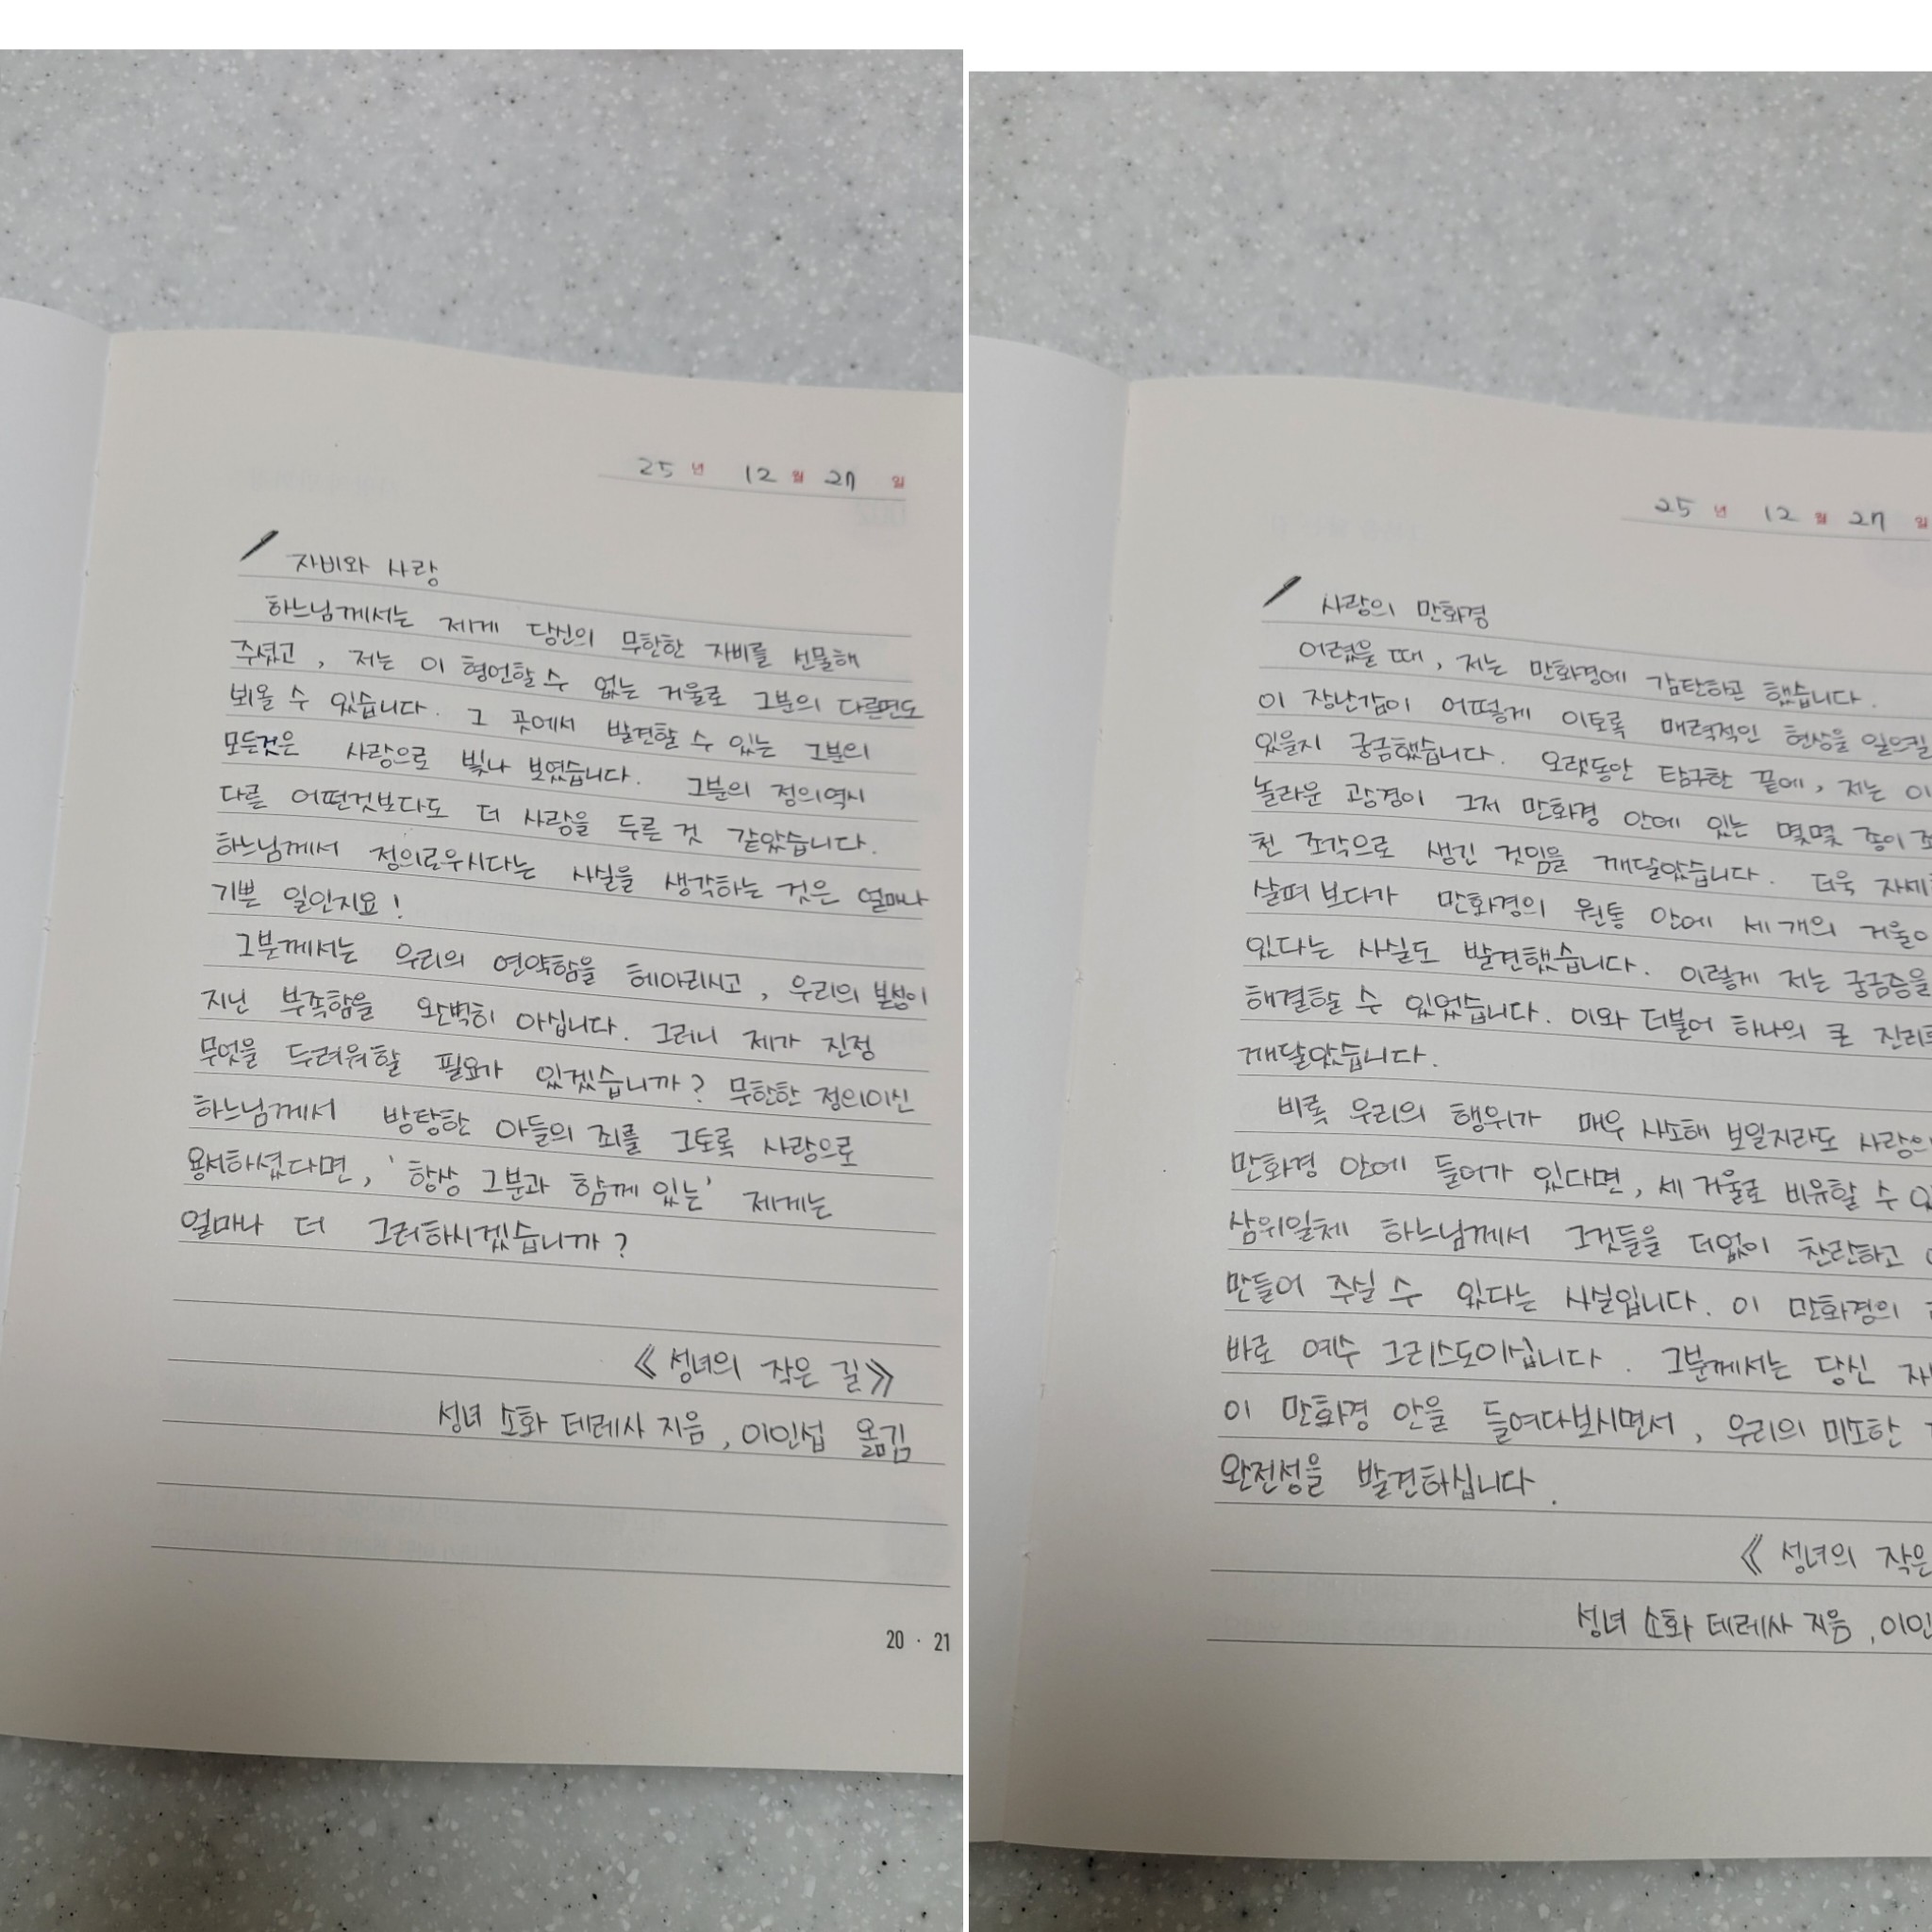 25년 12월 27일
자비와 사랑
하느님께서는 제게 당신의 무한한 자비를 선물해
주셨고, 저는 이 형언할 수 없는 거울로 그분의 다른면도
뵈올 수 있습니다. 그 곳에서 발견할 수 있는 그분의
모든것은 사랑으로 빛나 보였습니다. 그분의 정의역시
다른 어떤것보다도 더 사랑을 두른 것 같았습니다.
하느님께서 정의로우시다는 사실을 생각하는 것은 얼마나
기쁜 일인지요!
그분께서는 우리의 연약함을 헤아리시고, 우리의 본성이
지닌 부족함을 완벽히 아십니다. 그러니 제가 진정
무엇을 두려워할 필요가 있겠습니까? 무한한 정의이신
하느님께서 방탕한 아들의 죄를 그토록 사랑으로
용서하셨다면, '항상 그분과 함께 있는' 제게는
얼마나 더 그러하시겠습니까?
《성녀의 작은 길》
성녀 소화 데레사 지음, 이인섭 옮김
20 · 21
25년 12월 27일
사랑의 만화경
어렸을 때, 저는 만화경에 감탄하곤 했습니다.
이 장난감이 어떻게 이토록 매력적인 현상을 일으킬
있을지 궁금했습니다. 오랫동안 탐구한 끝에, 저는 이
놀라운 광경이 그저 만화경 안에 있는 몇몇 종이
천 조각으로 생긴 것임을 깨달았습니다. 더욱 자세
살펴 보다가 만화경의 원통 안에 세 개의 거울이
있다는 사실도 발견했습니다. 이렇게 저는 궁금증을
해결할 수 있었습니다. 이와 더불어 하나의 큰 진리
깨달았습니다.
비록 우리의 행위가 매우 사소해 보일지라도 사랑의
만화경 안에 들어가 있다면, 세 거울로 비유할 수
삼위일체 하느님께서 그것들을 더없이 찬란하고
만들어 주실 수 있다는 사실입니다. 이 만화경의
바로 예수 그리스도이십니다. 그분께서는 당신
이 만화경 안을 들여다보시면서, 우리의 미소한
완전성을 발견하십니다.
《성녀의 작은
성녀 소화 데레사 지음, 이인